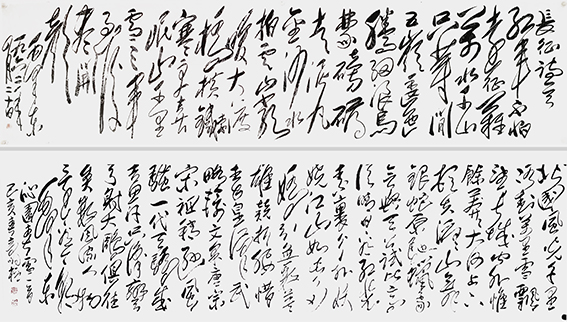 長征詩
紅軍不怕
遠征難
萬水千山
只等閒
五嶺逶迤
騰細浪烏
蒙磅礴
走泥丸
金沙水
拍雲崖
暖大渡
橋橫鐵
寒更喜
岷山千里
雪三軍
過後
盡開
顏
毛澤東
北國風光千里
冰封萬里雪飄
望長城內外惟
餘莽莽大河上下
頓失滔滔山舞
銀蛇原馳蠟象欲
與天公試比高
須晴日看紅裝
素裹分外妖
嬈江山如此多
嬌引無數英
雄競折腰惜
秦皇漢武
略輸文采唐宗
宋祖稍遜風
騷一代天驕成
吉思汗只識彎
弓射大鵰俱往
矣數風流人物
還看今朝
沁園春雪一首
己亥年